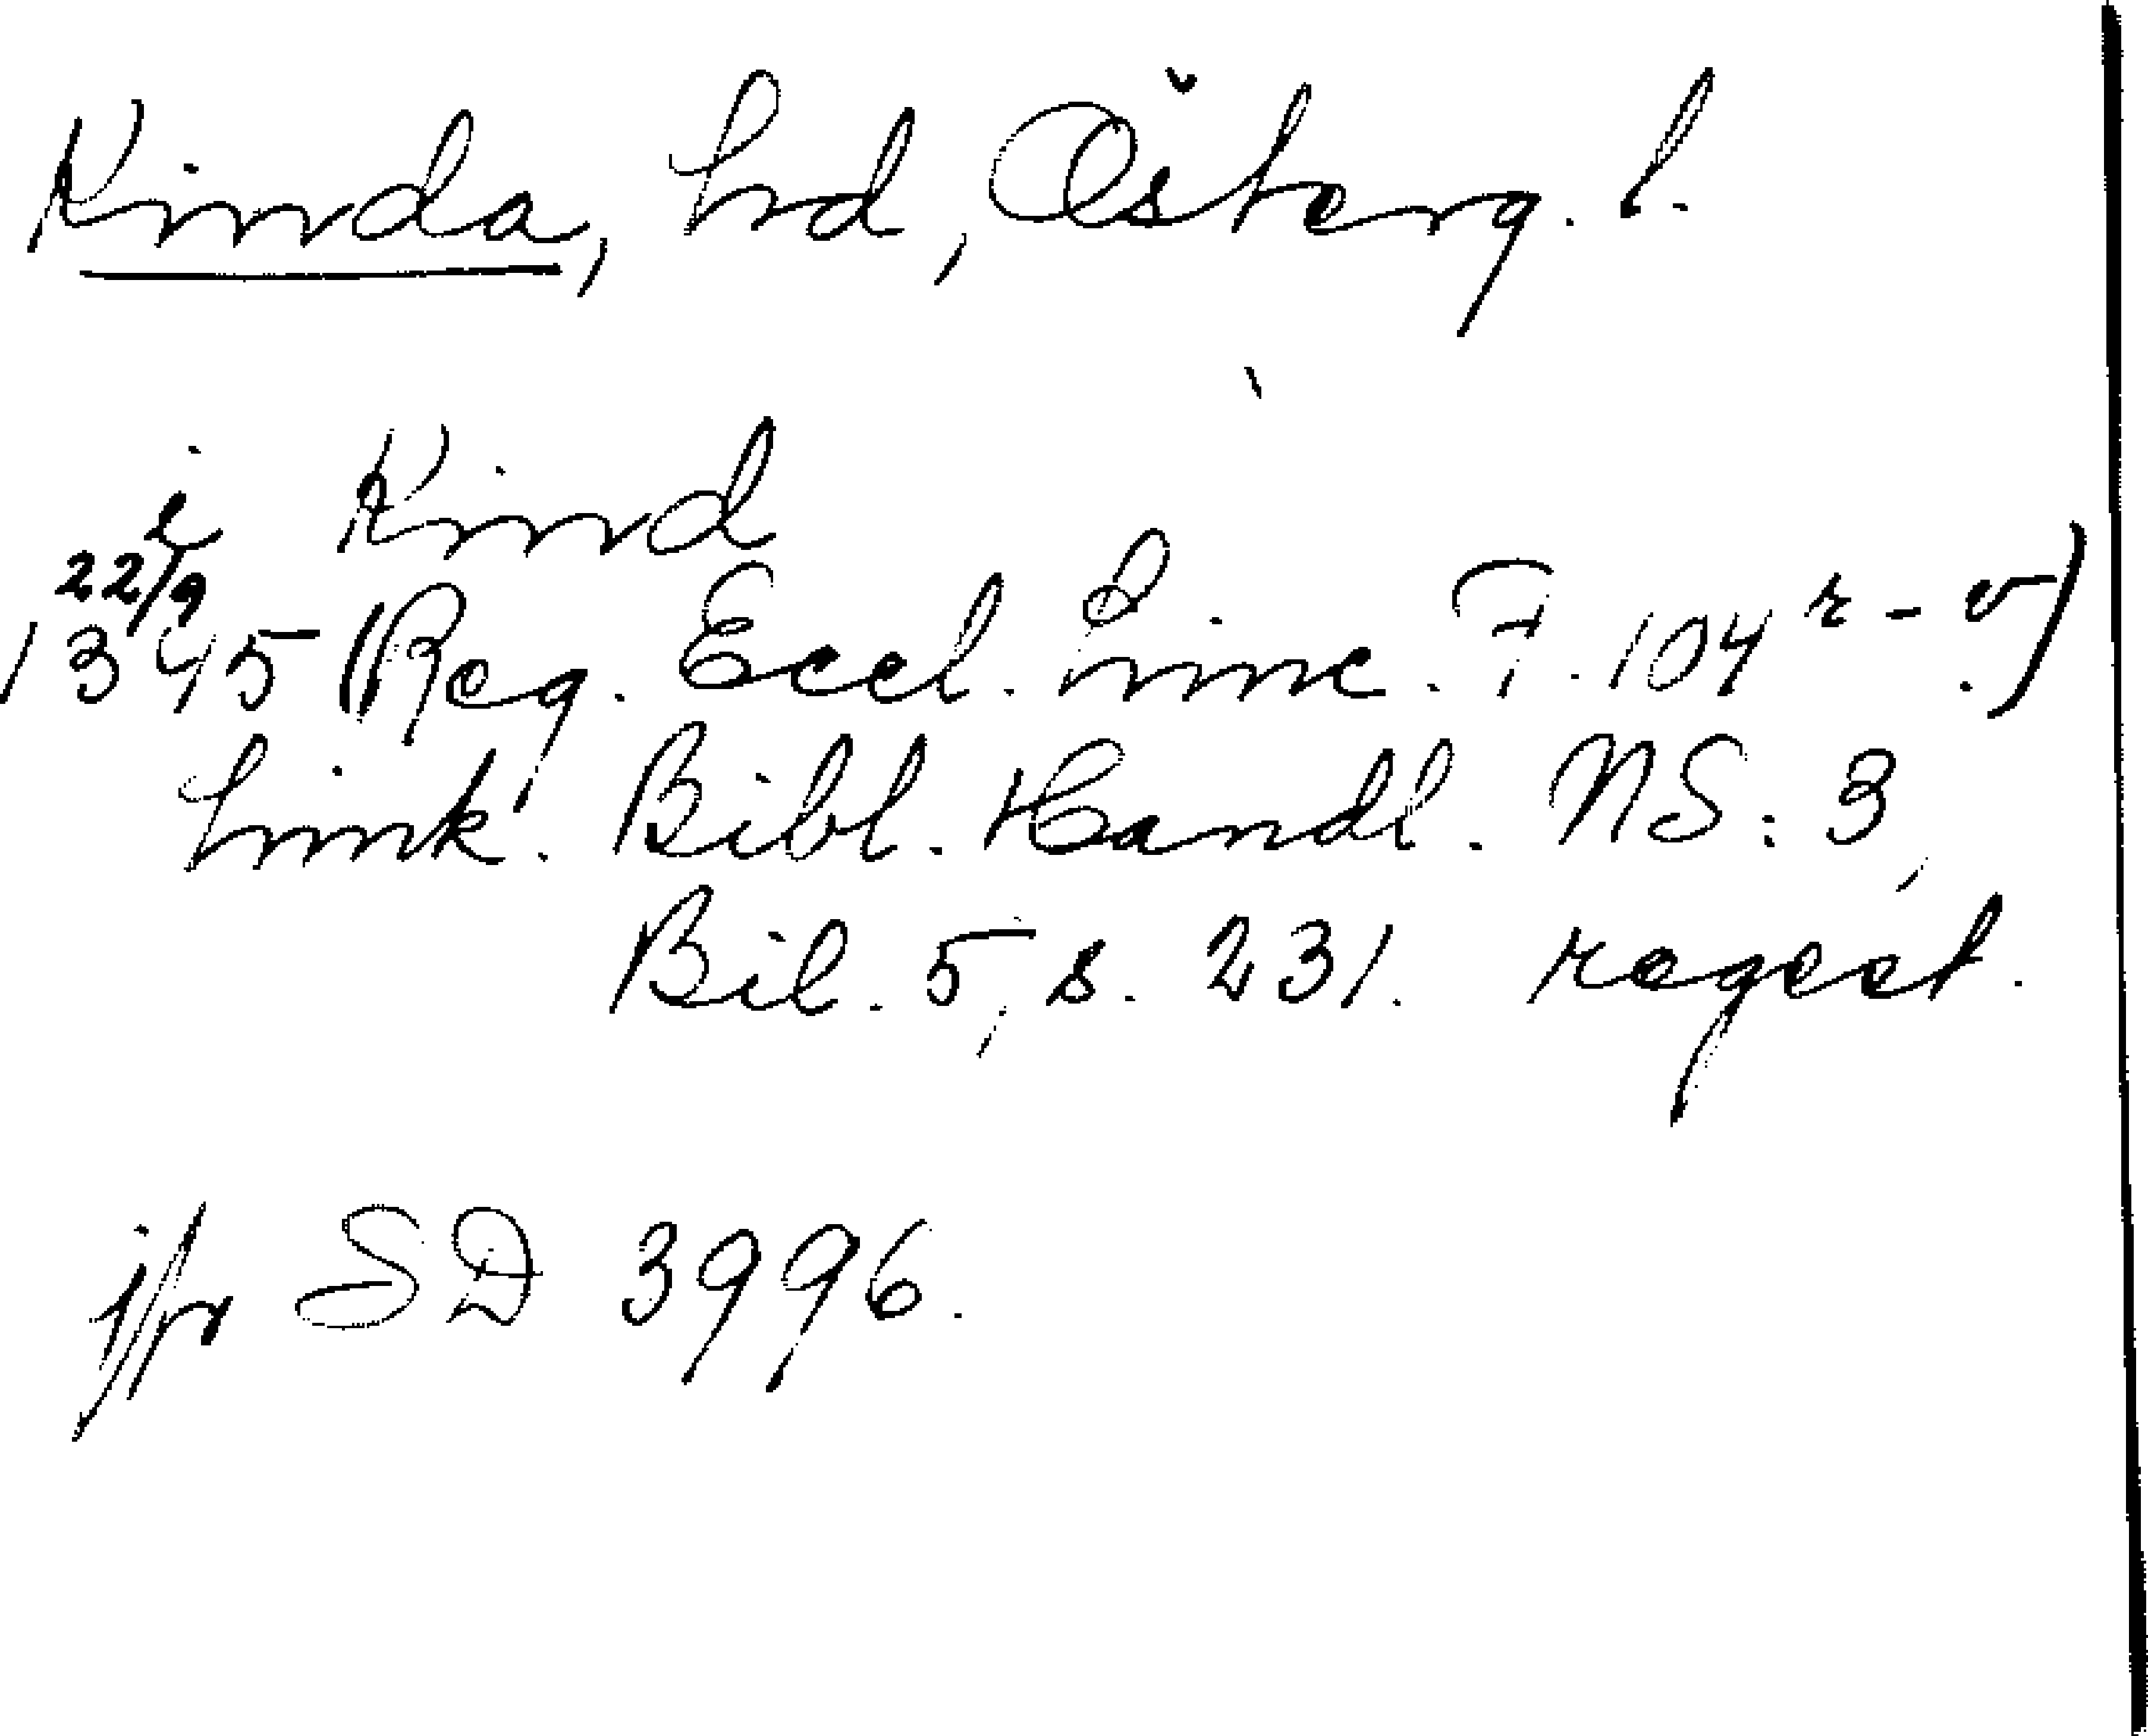 Kinda, hd, Österg. l.
i Kind
22/9
1345 (Reg. Eccl. Linc. F. 104 r-v.)
Link. Bibl. Handl. NS: 3,
Bil. 5, s. 231. regest.
jfr SD 3996.